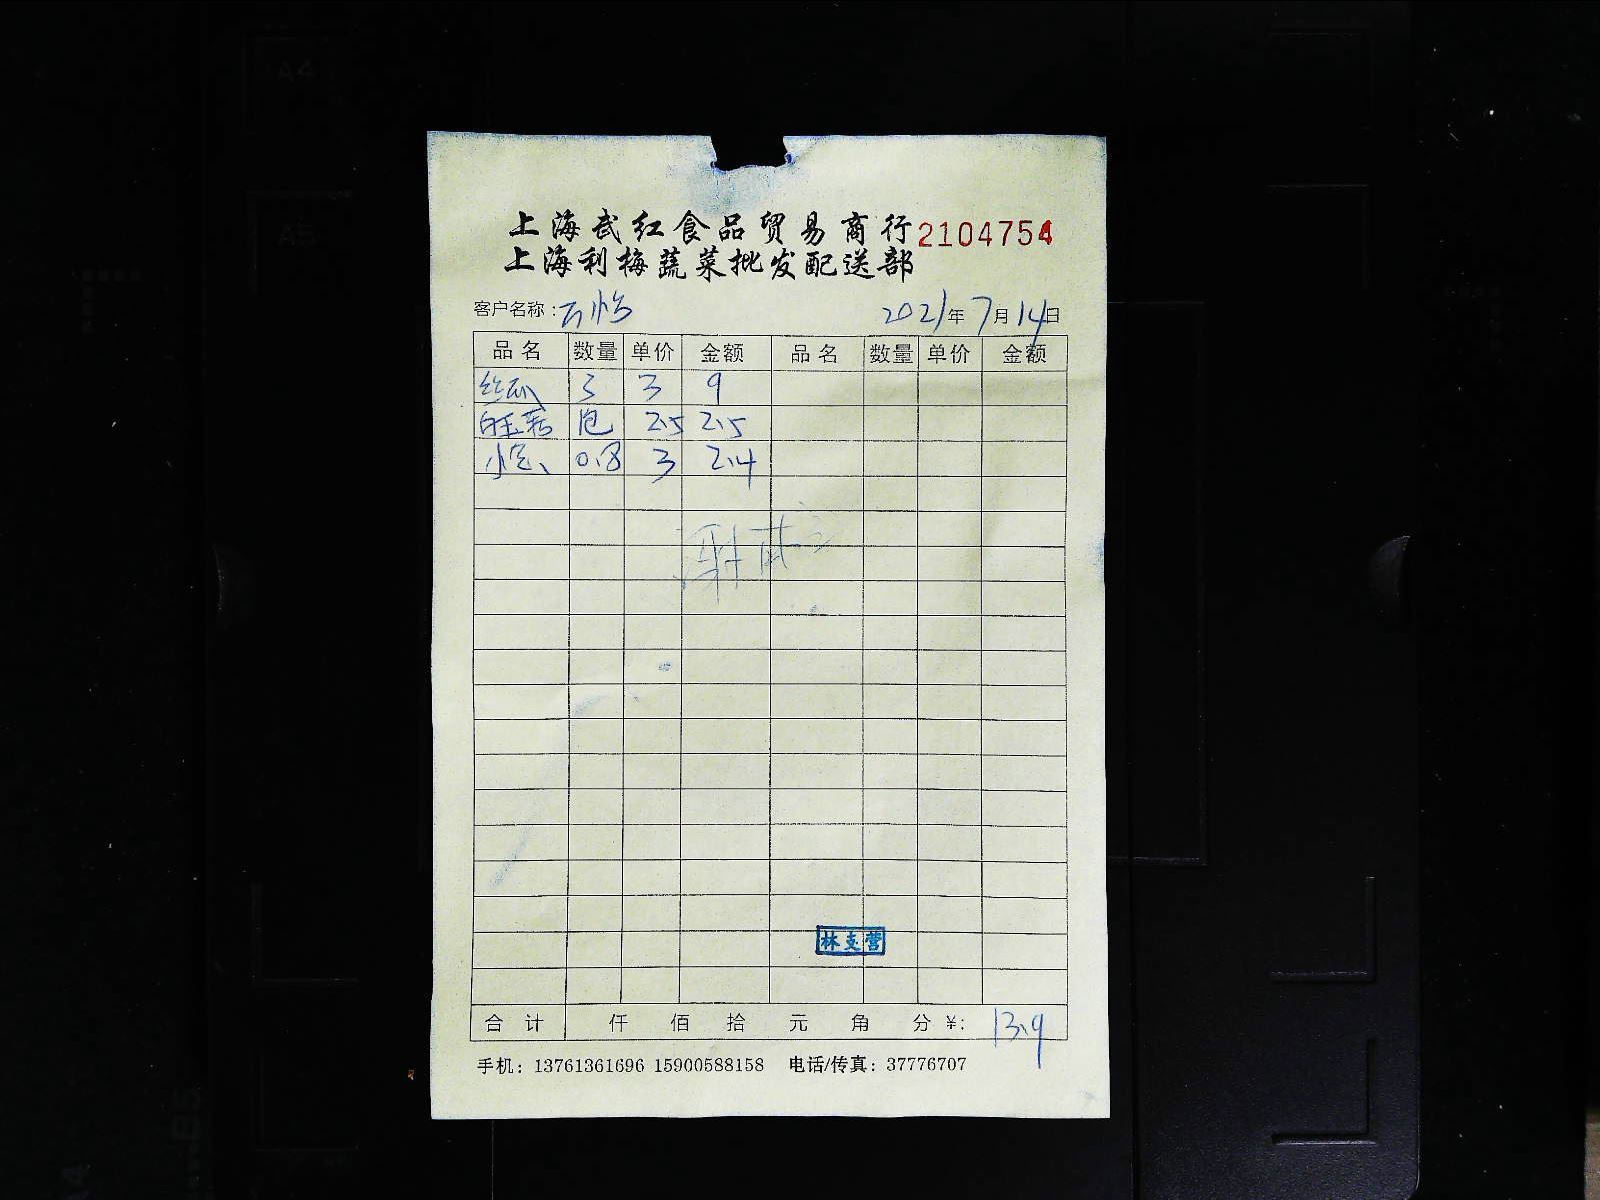 上海武红食品贸易商行 2104754
上海利梅蔬菜批发配送部
客户名称: 2021年7月14日
品名 数量 单价 金额 品名 数量 单价 金额
丝瓜 3 3 9
包 2.5 2.5
0.8 3 2.4
林支营
合计 仟 佰 拾 元 角 分 ¥: 13.9
手机: 13761361696 15900588158 电话/传真: 37776707